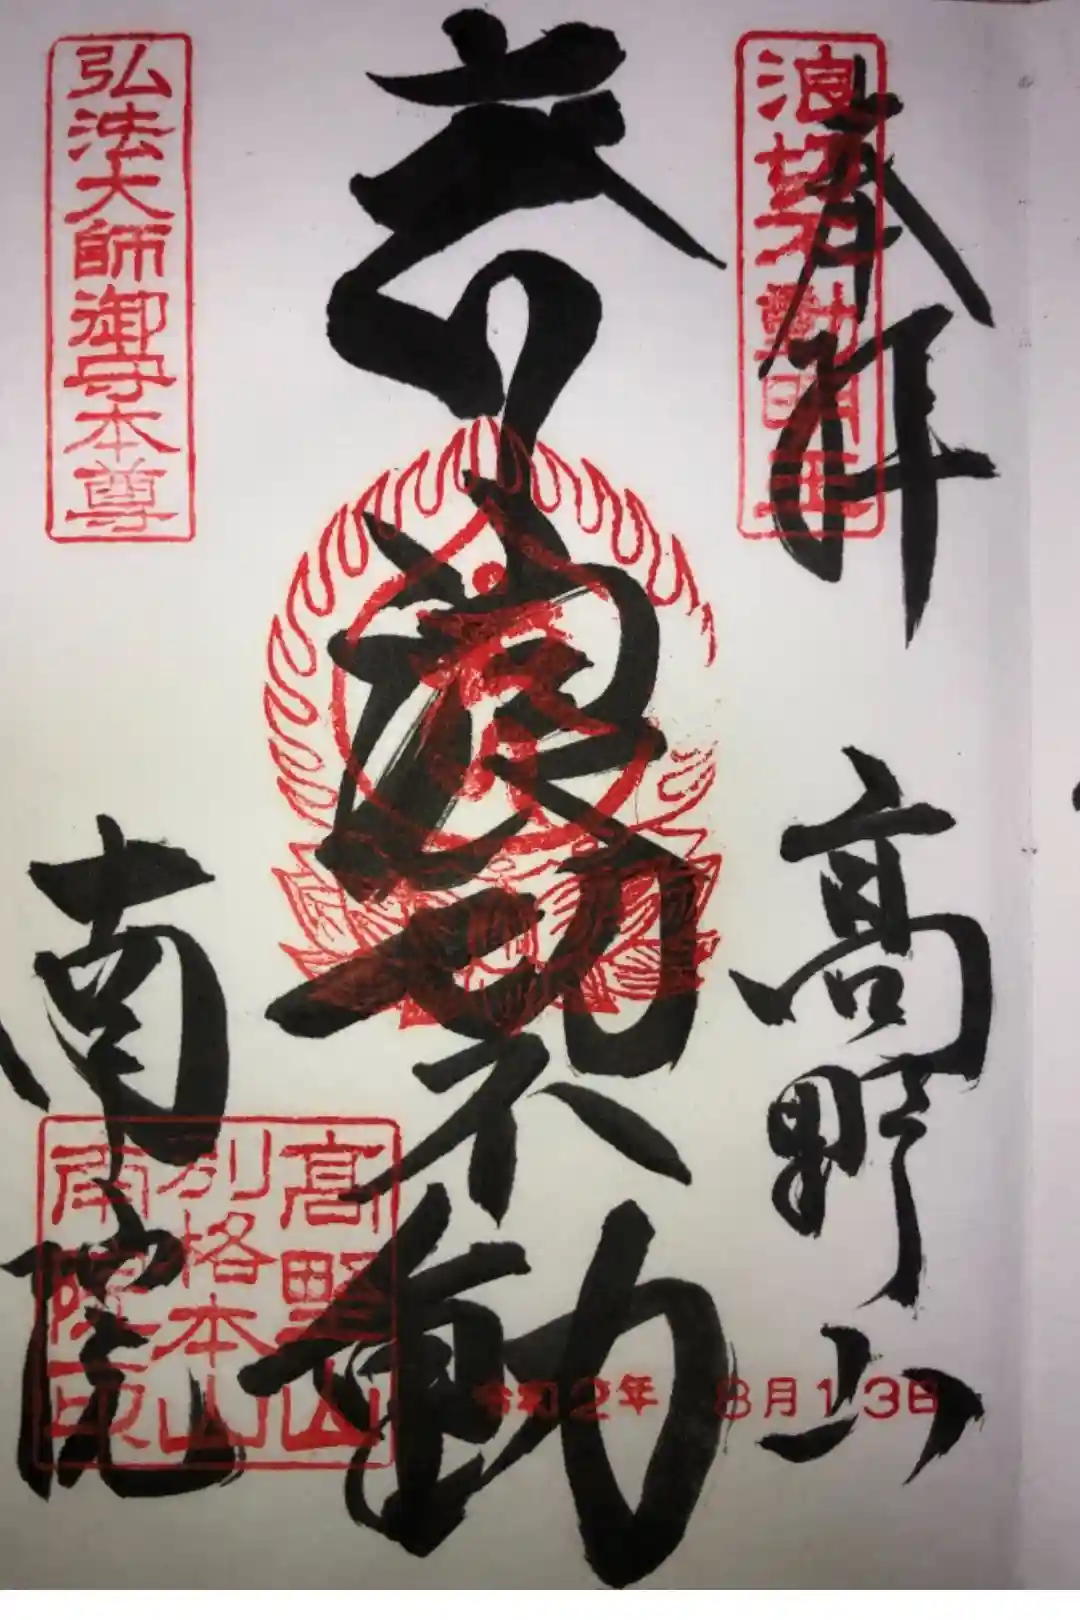 奉拝
高野山
浪切不動明王
浪切不動
弘法大師御守本尊
南院
高野山
別格本山
南院印
令和2年 8月13日